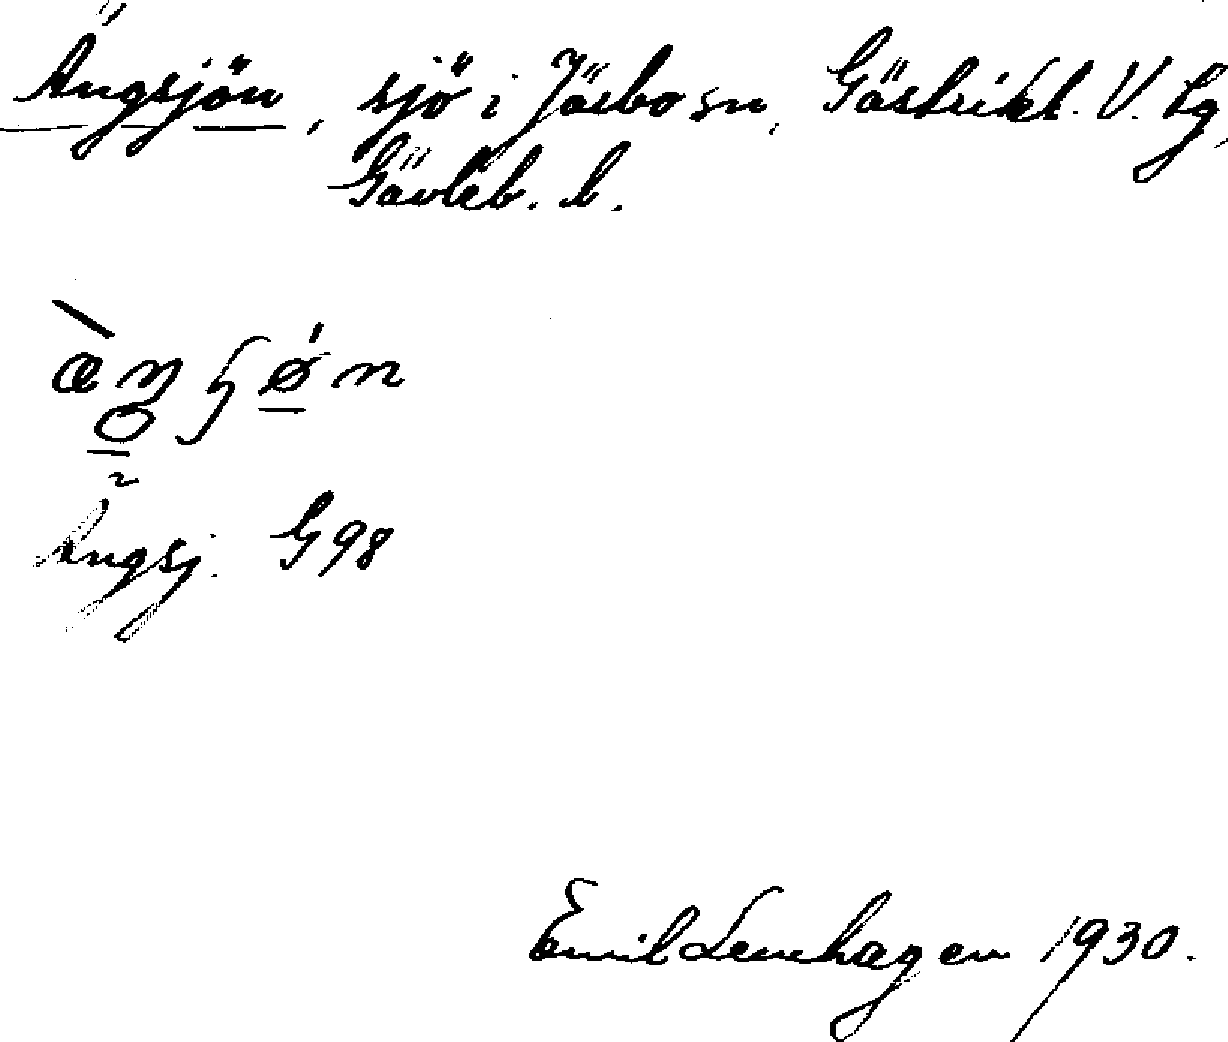 Ängsjön, sjö i Järbo sn, Gästrikl. V. tg,
Gävleb. l.
Ängsj. G 98
Emil Lenhagen 1930.